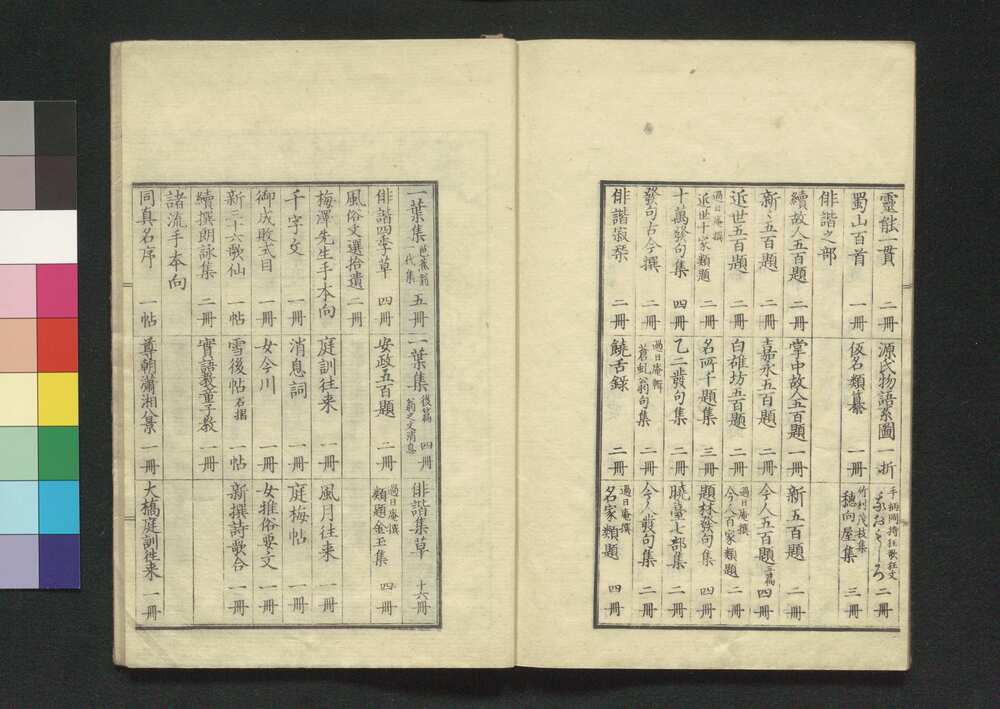 靈能一貫 二冊 源氏物語系圖 一折 手柄岡持狂歌狂文 二冊
蜀山百首 一冊 仮名類纂 一冊 竹村茂枝集 穗向屋集 三冊
俳諧之部
續故人五百題 二冊 掌中故人五百題 一冊 新五百題 二冊
新々五百題 二冊 嘉永五百題 二冊 今人五百題 二篇 四冊
近世五百題 二冊 白雄坊五百題 二冊 過日庵撰 今人百家類題 二冊
過日庵撰 近世十家類題 二冊 名所千題集 三冊 題林發句集 四冊
十萬發句集 四冊 乙二發句集 二冊 曉臺七部集 二冊
發句古今撰 二冊 過日庵輯 蒼虬翁句集 二冊 今人發句集 二冊
俳諧寂栞 二冊 饒舌録 二冊 過日庵撰 名家類題 四冊
一葉集 芭蕉翁一代集 五冊 一葉集 後篇 翁之文消息 四冊 俳諧集草 十六冊
俳諧四季草 四冊 安政五百題 二冊 過日庵撰 類題金玉集 四冊
風俗文選拾遺 二冊
梅澤先生手本向 庭訓往来 一冊 風月往来 一冊
千字文 一冊 消息詞 一冊 庭梅帖 一冊
御成敗式目 一冊 女今川 一冊 女雅俗要文 一冊
新三十六歌仙 一帖 雪後帖 石摺 一帖 新撰詩歌合 一冊
續撰朗詠集 二冊 實語教童子教 一冊
諸流手本向
同真名序 一帖 尊朝瀟湘八景 一冊 大橋庭訓往来 一冊